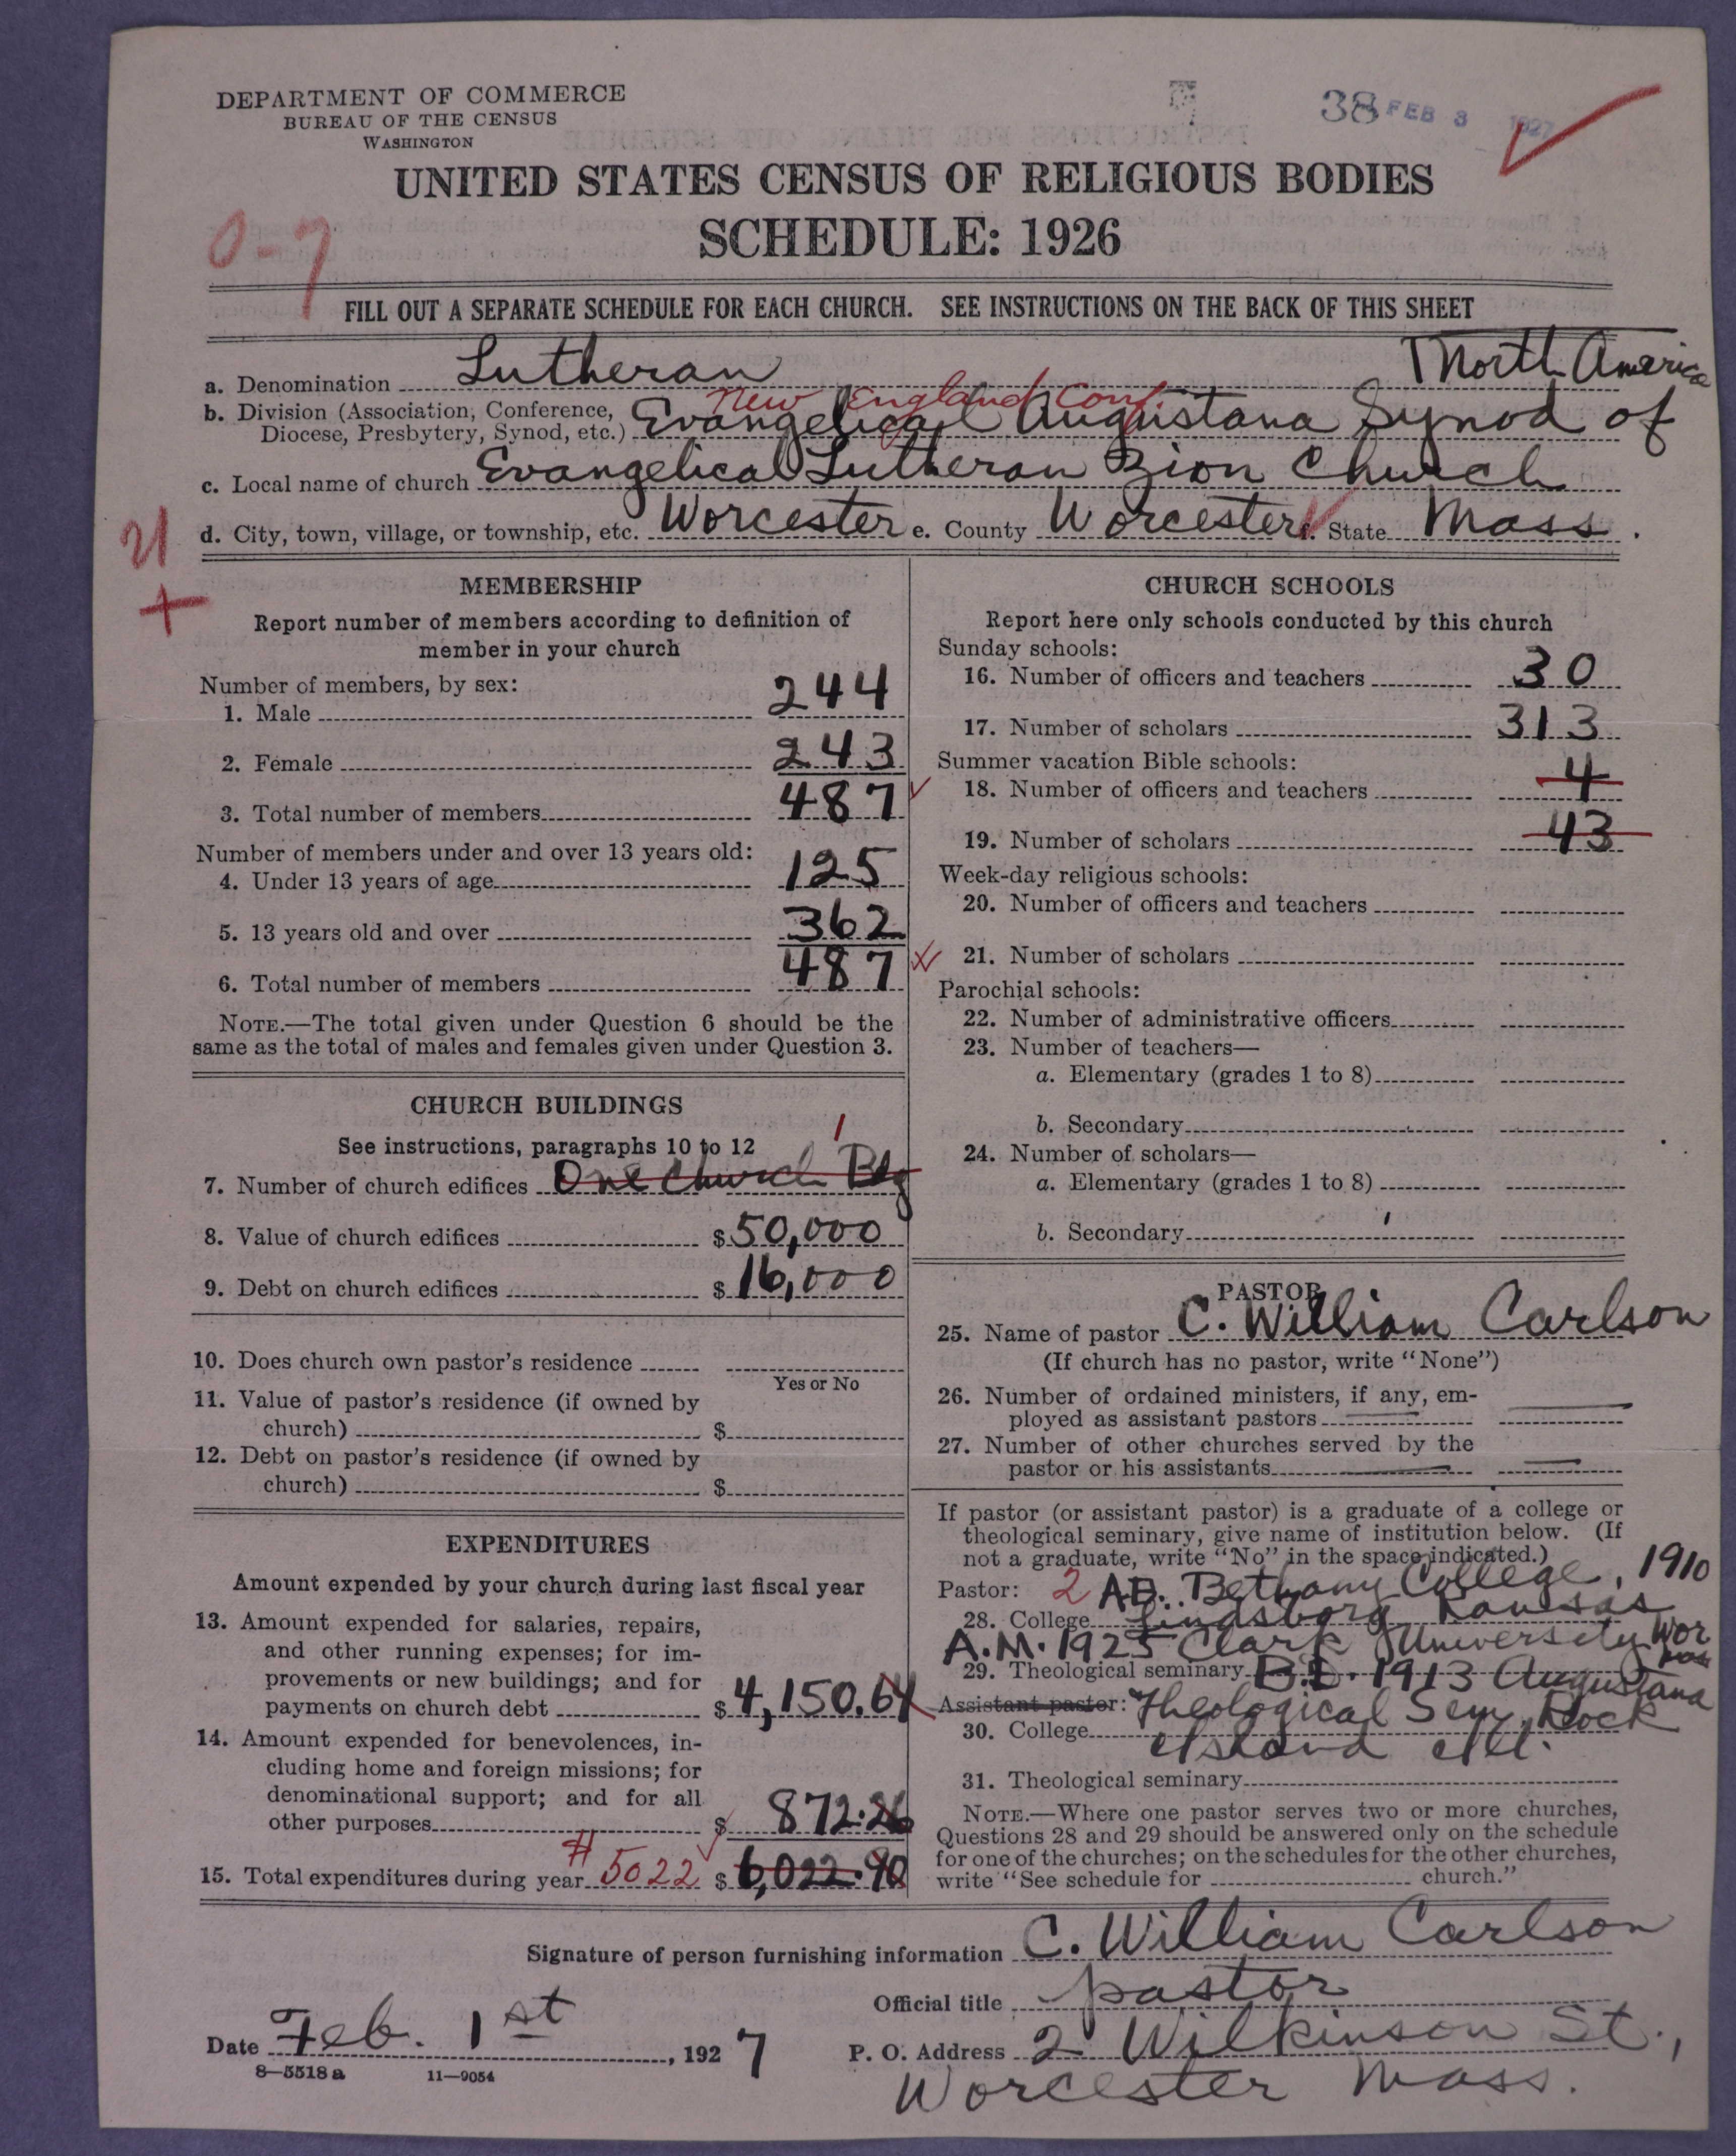 DEPARTMENT OF COMMERCE
BUREAU OF THE CENSUS
WASHINGTON
38 FEB 3 1927
UNITED STATES CENSUS OF RELIGIOUS BODIES
SCHEDULE: 1926
0-7
FILL OUT A SEPARATE SCHEDULE FOR EACH CHURCH. SEE INSTRUCTIONS ON THE BACK OF THIS SHEET
a. Denomination Lutheran
North America
New England Conf.
b. Division (Association, Conference, Diocese, Presbytery, Synod, etc.) Evangelical Augustana Synod of
c. Local name of church Evangelical Lutheran Zion Church
d. City, town, village, or township, etc. Worcester e. County Worcester f. State Mass.
21
+
MEMBERSHIP
Report number of members according to definition of
member in your church
Number of members, by sex:
1. Male 244
2. Female 243
3. Total number of members 487
Number of members under and over 13 years old:
4. Under 13 years of age 125
5. 13 years old and over 362
6. Total number of members 487
NOTE.—The total given under Question 6 should be the
same as the total of males and females given under Question 3.
CHURCH BUILDINGS
See instructions, paragraphs 10 to 12
1
7. Number of church edifices One Church Bldg
8. Value of church edifices $ 50,000
9. Debt on church edifices $ 16,000
10. Does church own pastor's residence
Yes or No
11. Value of pastor's residence (if owned by
church) $
12. Debt on pastor's residence (if owned by
church) $
EXPENDITURES
Amount expended by your church during last fiscal year
13. Amount expended for salaries, repairs,
and other running expenses; for im-
provements or new buildings; and for
payments on church debt $ 4,150.64
14. Amount expended for benevolences, in-
cluding home and foreign missions; for
denominational support; and for all
other purposes $ 872.26
15. Total expenditures during year # 5022 $ 6,022.90
CHURCH SCHOOLS
Report here only schools conducted by this church
Sunday schools:
16. Number of officers and teachers 30
17. Number of scholars 313
Summer vacation Bible schools:
18. Number of officers and teachers 4
19. Number of scholars 43
Week-day religious schools:
20. Number of officers and teachers
21. Number of scholars
Parochial schools:
22. Number of administrative officers
23. Number of teachers—
a. Elementary (grades 1 to 8)
b. Secondary
24. Number of scholars—
a. Elementary (grades 1 to 8)
b. Secondary
PASTOR
25. Name of pastor C. William Carlson
(If church has no pastor, write "None")
26. Number of ordained ministers, if any, em-
ployed as assistant pastors —
27. Number of other churches served by the
pastor or his assistants —
If pastor (or assistant pastor) is a graduate of a college or
theological seminary, give name of institution below. (If
not a graduate, write "No" in the space indicated.)
Pastor: 2 AB. Bethany College, 1910
28. College Lindsborg Kansas
A.M. 1925 Clark University Wor
29. Theological seminary B.D. 1913 Augustana
Assistant pastor: Theological Sem, Rock
30. College Island Ill.
31. Theological seminary
NOTE.—Where one pastor serves two or more churches,
Questions 28 and 29 should be answered only on the schedule
for one of the churches; on the schedules for the other churches,
write "See schedule for church."
Signature of person furnishing information C. William Carlson
Official title pastor
Date Feb. 1st, 1927
P. O. Address 2 Wilkinson St.,
Worcester Mass.
8—5518 a 11—9054